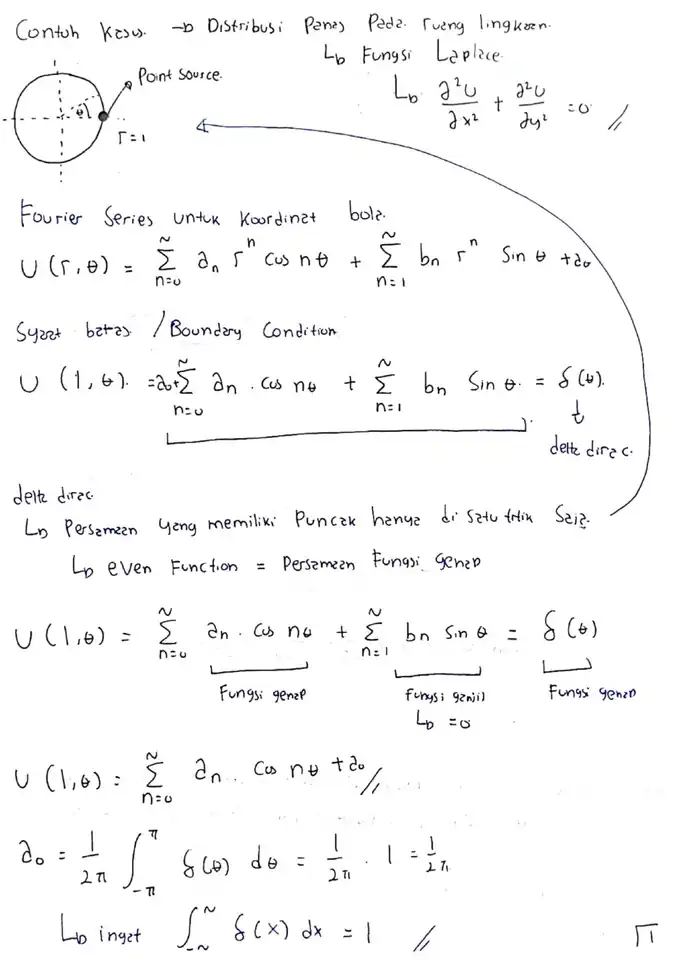 Contoh Kasus → Distribusi Panas Pada ruang lingkaran.
↳ Fungsi Laplace.
↳ ∂²U/∂x² + ∂²U/∂y² = 0 //
Point source.
θ
r=1
Fourier Series untuk Koordinat bola.
U(r,θ) = ∑_{n=0}^{∞} a_n r^n cos nθ + ∑_{n=1}^{∞} b_n r^n sin θ + a_0
Syarat batas / Boundary Condition
U(1,θ). = a_0 + ∑_{n=0}^{∞} a_n . cos nθ + ∑_{n=1}^{∞} b_n sin θ. = δ(θ).
delta dirac.
delta dirac
↳ Persamaan yang memiliki Puncak hanya di satu titik saja.
↳ even Function = Persamaan Fungsi genap
U(1,θ) = ∑_{n=0}^{∞} a_n . cos nθ + ∑_{n=1}^{∞} b_n sin θ = δ(θ)
Fungsi genap Fungsi ganjil Fungsi genap
↳ =0
U(1,θ) = ∑_{n=0}^{∞} a_n . cos nθ + a_0 //
a_0 = 1/2π ∫_{-π}^{π} δ(θ) dθ = 1/2π . 1 = 1/2π
↳ ingat ∫_{-∞}^{∞} δ(x) dx = 1 //